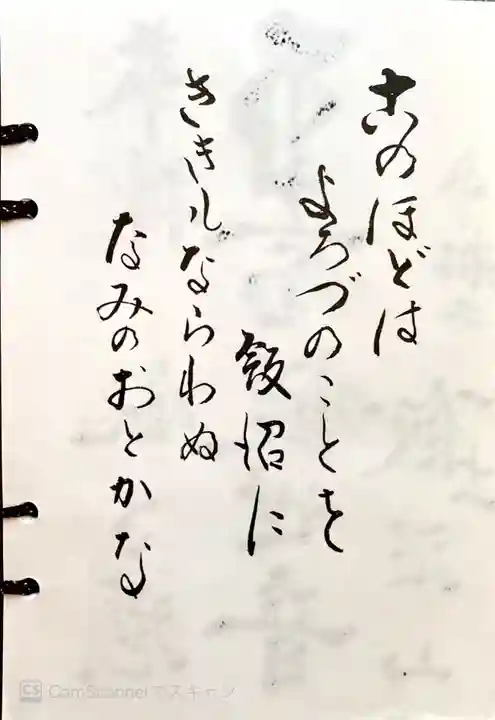 このほどは
よろづのことを
飯沼に
ききもならわぬ
なみのおとかな
CS CamScannerでスキャン